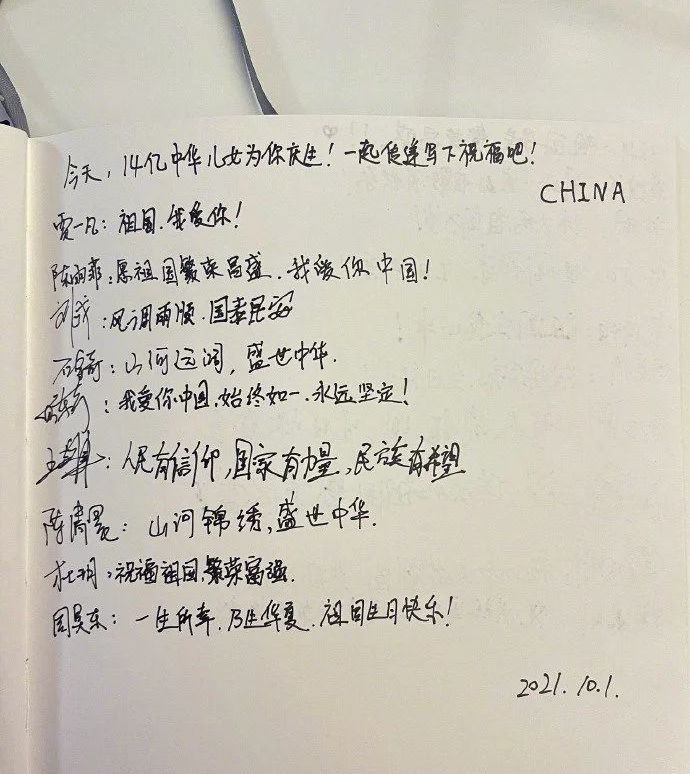 今天，14亿中华儿女为你庆生！一起传递写下祝福吧！
CHINA
贾一凡：祖国，我爱你！
陈雨菲：愿祖国繁荣昌盛，我爱你中国！
：风调雨顺．国泰民安
：山河远阔，盛世中华．
：我爱你中国，始终如一，永远坚定！
：人民有信仰，国家有力量，民族有希望
陈清晨：山河锦绣，盛世中华．
杜玥：祝福祖国，繁荣富强．
周昊东：一生所幸，乃生华夏．祖国生日快乐！
2021.10.1.